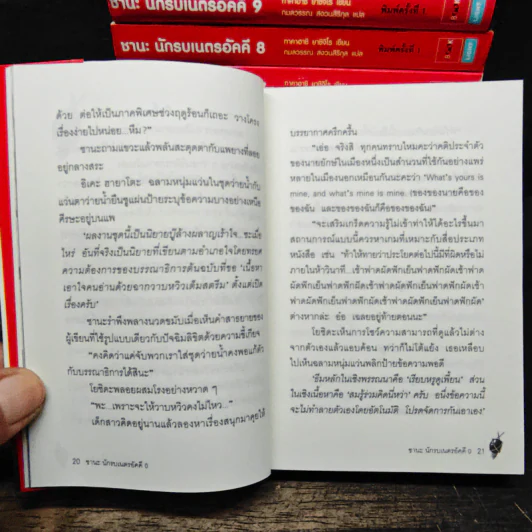 ชานะ นักรบเนตรอัคคี 9
ทาคาฮาชิ ยาชิจิโร เขียน
กมลวรรณ สงวนสิริกุล แปล
พิมพ์ครั้งที่ 1
ชานะ นักรบเนตรอัคคี 8
ทาคาฮาชิ ยาชิจิโร เขียน
กมลวรรณ สงวนสิริกุล แปล
พิมพ์ครั้งที่ 1
ด้วย ต่อให้เป็นภาคพิเศษช่วงฤดูร้อนก็เถอะ วางโครง
เรื่องง่ายไปหน่อย...หืม?"
ชานะถามแขวะแล้วพลันสะดุดตากับแพยางที่ลอย
อยู่กลางสระ
อิเคะ ฮายาโตะ ฉลามหนุ่มแว่นในชุดว่ายน้ำกับ
แว่นตาว่ายน้ำยืนชูแผ่นป้ายระบุข้อความบางอย่างเหนือ
ศีรษะอยู่บนแพ
'ผลงานชุดนี้เป็นนิยายบู๊ล้างผลาญเร้าใจ...ซะเมื่อ
ไหร่ อันที่จริงเป็นนิยายที่เขียนตามอำเภอใจโดยทรยศ
ความต้องการของบรรณาธิการต้นฉบับที่ขอ 'เนื้อหา
เอาใจคนอ่านด้วยฉากวาบหวิวเต็มสตรีม' ตั้งแต่เปิด
เรื่องครับ'
ชานะรำพึงพลางนวดขมับเมื่อเห็นคำสาธยายของ
ผู้เขียนที่ใช้รูปแบบเดียวกับปัจฉิมลิขิตด้วยความขี้เกียจ
"คงคิดว่าแค่จับพวกเราใส่ชุดว่ายน้ำคงพอแก้ตัว
กับบรรณาธิการได้สินะ"
โยชิดะพลอยผสมโรงอย่างหวาด ๆ
"พะ...เพราะจะให้วาบหวิวคงไม่ไหว..."
เด็กสาวคิดอยู่นานแล้วลองหาเรื่องสนุกมาคุยให้
20 ชานะ นักรบเนตรอัคคี 0
บรรยากาศครึกครื้น
"เอ่อ จริงสิ ทุกคนทราบไหมคะว่าคติประจำตัว
ของนายยักษ์ในเมืองหนึ่งเป็นสำนวนที่ใช้กันอย่างแพร่
หลายในเมืองนอกเหมือนกันนะคะว่า "What's yours is
mine, and what's mine is mine. (ของของนายคือของ
ของฉัน และของของฉันก็คือของของฉัน)"
"จะเสริมเกร็ดความรู้ไม่เข้าท่าให้ได้อะไรขึ้นมา
สถานการณ์แบบนี้ควรหาเกมที่เหมาะกับสื่อประเภท
หนังสือ เช่น 'ท้าให้ทายว่าประโยคต่อไปนี้มีที่ผิดหรือไม่
ภายในห้าวินาที...เช้าฟาดผัดฟักเย็นฟาดฟักผัดเช้าฟาด
ผัดฟักเย็นฟาดฟักผัดเช้าฟาดผัดฟักเย็นฟาดฟักผัดเช้า
ฟาดผัดฟักเย็นฟาดฟักผัดเช้าฟาดผัดฟักเย็นฟาดฟักผัด'
ต่างหากล่ะ อ้อ เฉลยอยู่ท้ายตอนนะ"
โยชิดะเห็นการโชว์ความสามารถที่ดูแล้วไม่ต่าง
จากตัวเองแล้วแอบค้อน ทว่าก็ไม่ได้แย้ง เธอเหลือบ
ไปเห็นฉลามหนุ่มแว่นพลิกป้ายข้อความพอดี
'ธีมหลักในเชิงพรรณนาคือ 'เรียบหรูดูเฟี้ยน' ส่วน
ในเชิงเนื้อหาคือ 'สมรู้ร่วมคิดนี่หว่า' ครับ อนึ่งข้อความนี้
จะไม่ทำลายตัวเองโดยอัตโนมัติ โปรดจัดการกันเอาเอง'
ชานะ นักรบเนตรอัคคี 0 21